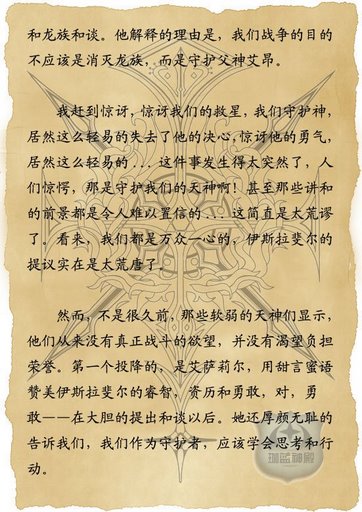 和龙族和谈。他解释的理由是，我们战争的目的
不应该是消灭龙族，而是守护父神艾昂。
我赶到惊讶，惊讶我们的救星，我们守护神，
居然这么轻易的失去了他的决心，惊讶他的勇气，
居然这么轻易的...这件事发生得太突然了，人
们惊愕，那是守护我们的天神啊！甚至那些讲和
的前景都是令人难以置信的...这简直是太荒谬
了。看来，我们都是万众一心的，伊斯拉斐尔的
提议实在是太荒唐了。
然而，不是很久前，那些软弱的天神们显示，
他们从来没有真正战斗的欲望，并没有渴望负担
荣誉。第一个投降的，是艾萨莉尔，用甜言蜜语
赞美伊斯拉斐尔的睿智，资历和勇敢，对，勇
敢——在大胆的提出和谈以后。她还厚颜无耻的
告诉我们，我们作为守护者，应该学会思考和行
动。
珈蓝神殿